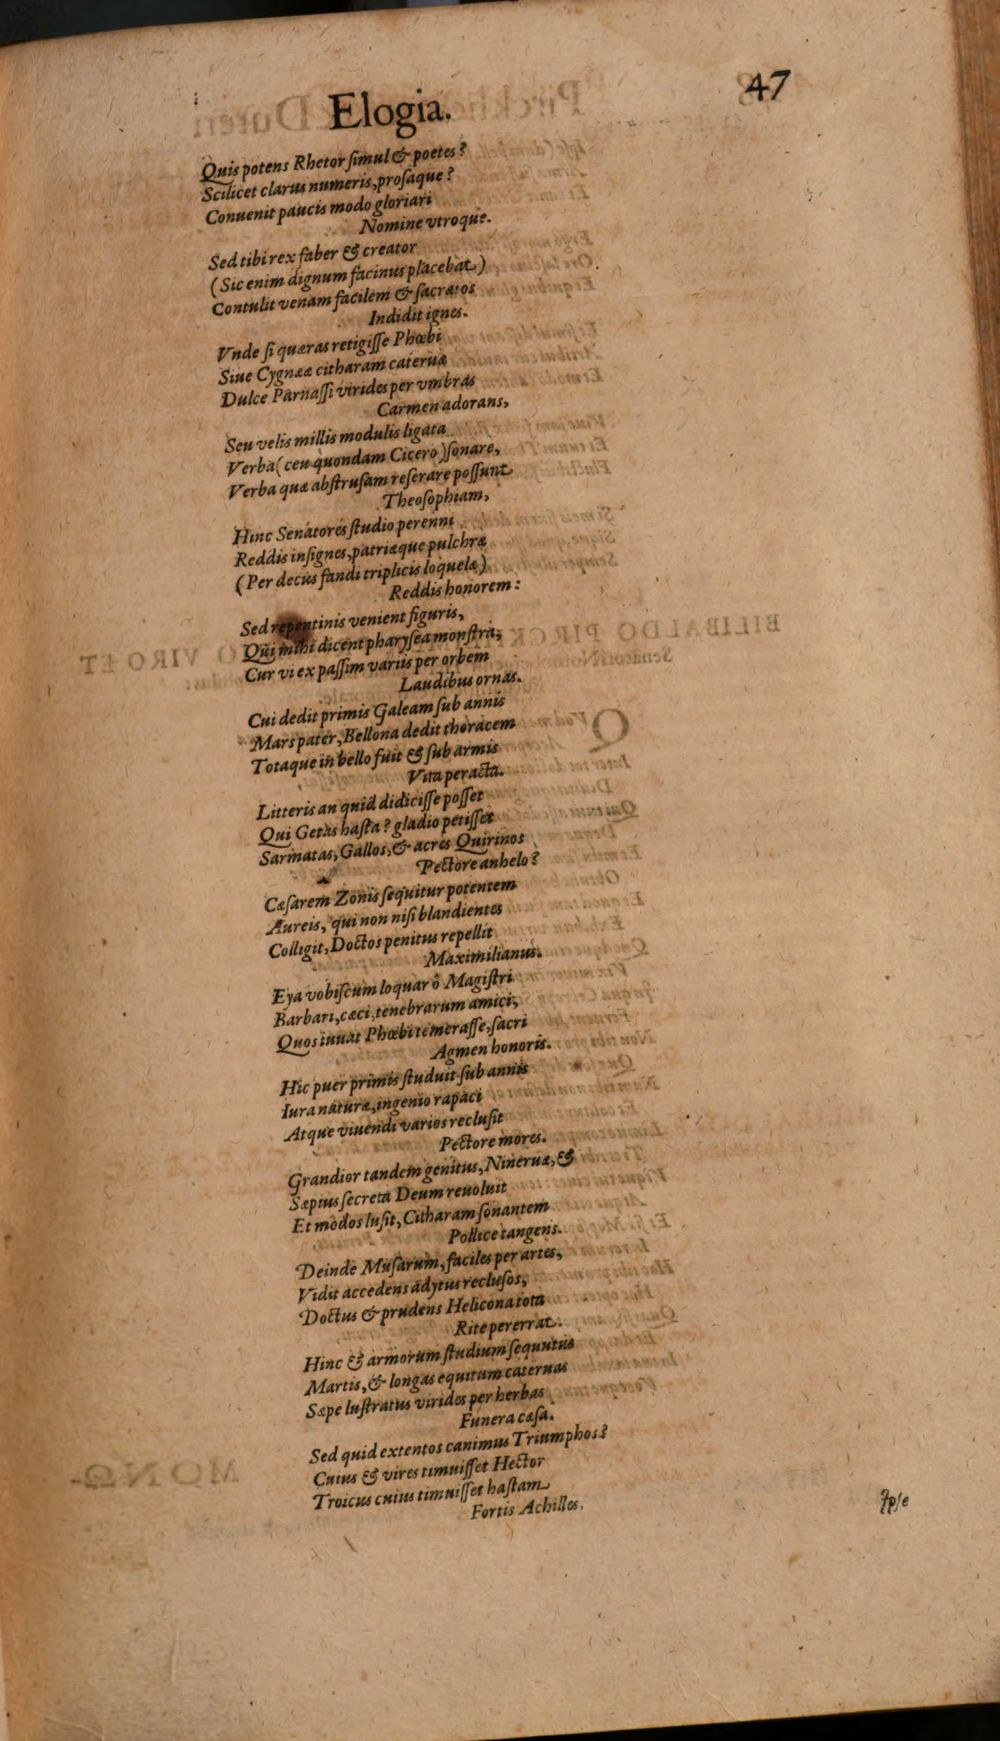 Elogia. 47
Quis potens Rhetor ſimul & poetes?
Scilicet clarus numeris, proſaque?
Conuenit paucis modo gloriari
Nomine vtroque.
Sed tibi rex faber & creator
(Sic enim dignum facinus placebat)
Contulit venam facilem & ſacratos
Indidit ignes.
Vnde ſi quæras retigiſſe Phœbi
Siue Cygnææ citharam cateruæ
Dulce Parnaſſi virides per vmbras
Carmen adorans,
Seu velis millis modulis ligata
Verba (ceu quondam Cicero) ſonare,
Verba quæ abſtruſam reſerare poſſunt
Theoſophiam,
Hinc Senatores ſtudio perenni
Reddis inſignes, patriæque pulchræ
(Per decus fandi triplicis loquelæ)
Reddis honorem:
Sed repentinis venient figuris,
Qui mihi dicent pharyſea monſtra,
Cur vi ex paſſim variis per orbem
Laudibus ornas.
Cui dedit primis Galeam ſub annis
Mars pater, Bellona dedit thoracem
Totaque in bello fuit & ſub armis
Vita peracta.
Litteris an quid didiciſſe poſſet
Qui Getas haſta? gladio petiſſet
Sarmatas, Gallos, & acres Quirinos
Pectore anhelo?
Cæſarem Zonis ſequitur potentem
Aureis, qui non niſi blandientes
Colligit, Doctos penitus repellit
Maximilianus.
Eya vobiſcum loquar ô Magiſtri
Barbari, cæci, tenebrarum amici,
Quos iuuat Phœbi temeraſſe, ſacri
Agmen honoris.
Hic puer primis ſtuduit ſub annis
Iura naturæ, ingenio rapaci
Atque viuendi varios recluſit
Pectore mores.
Grandior tandem genitus, Nineruæ, &
Sæpius ſecreta Deum reuoluit
Et modos luſit, Citharam ſonantem
Pollice tangens.
Deinde Muſarum, faciles per artes,
Vidit accedens adytus recluſos,
Doctus & prudens Helicona tota
Rite pererrat.
Hinc & armorum ſtudium ſequutus
Martis, & longas equitum cateruas
Sæpe luſtratus virides per herbas
Funera cæſa.
Sed quid extentos canimus Triumphos?
Cuius & vires timuiſſet Hector
Troicus cuius timuiſſet haſtam
Fortis Achilles.
Ipſe